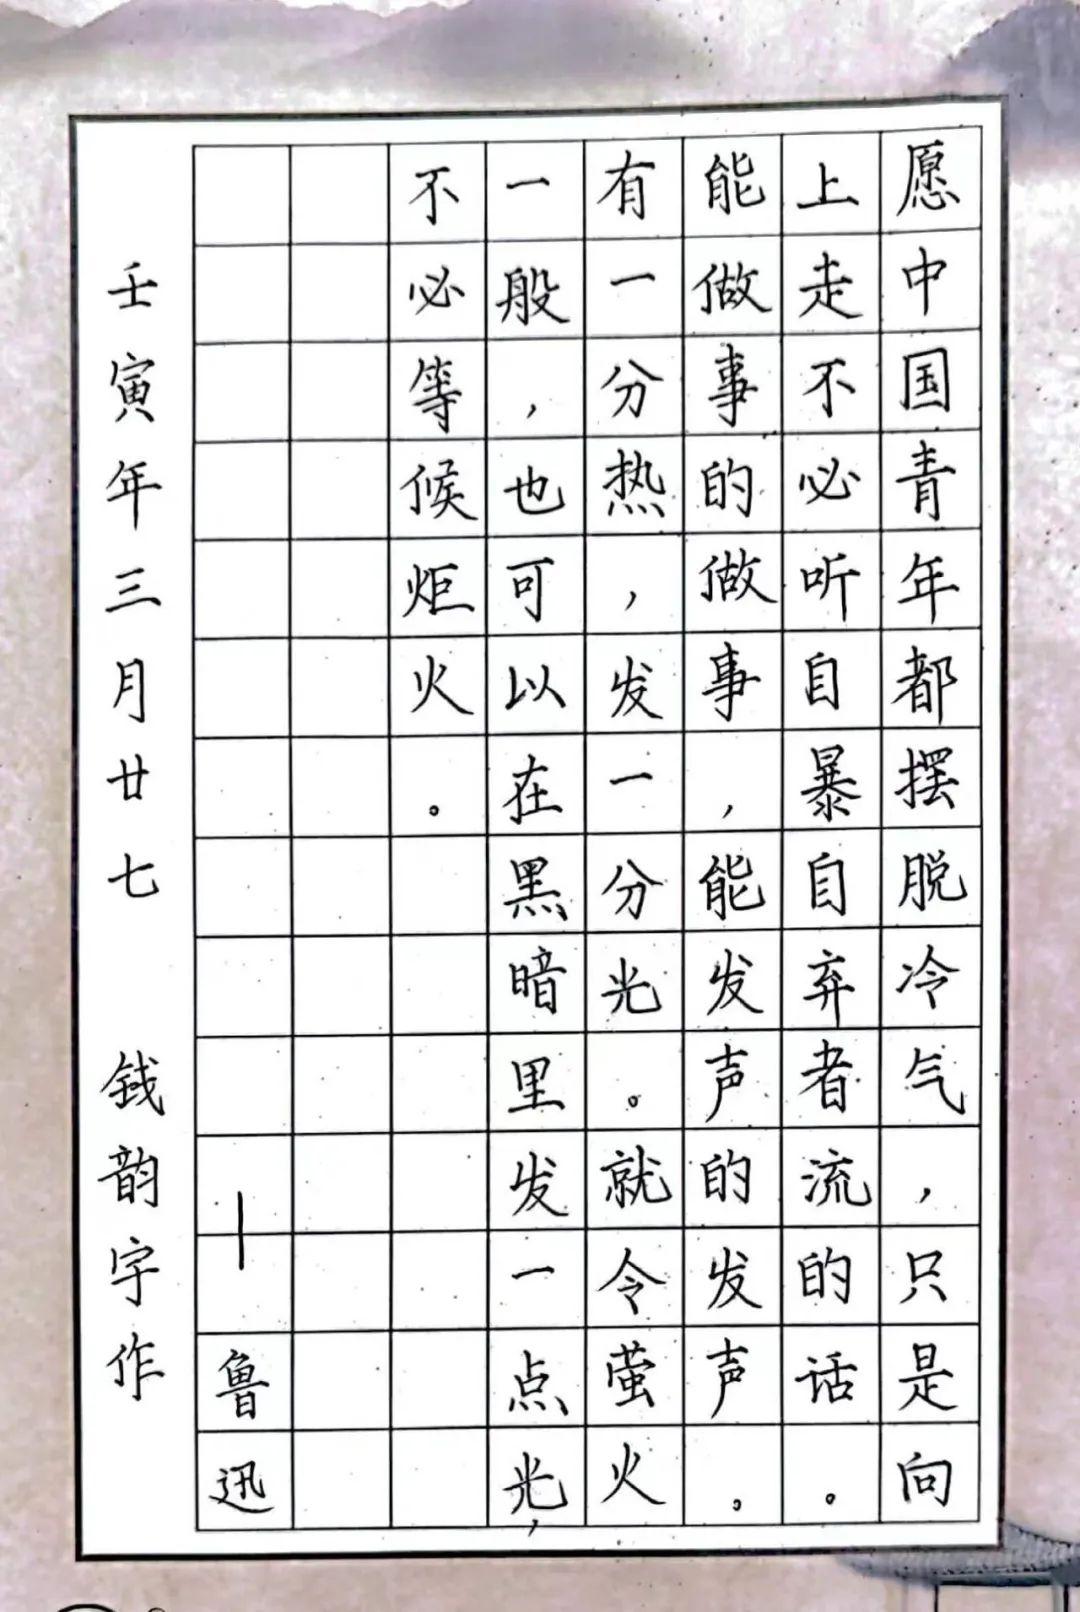 愿中国青年都摆脱冷气，只是向
上走不必听自暴自弃者流的话。
能做事的做事，能发声的发声。
有一分热，发一分光。就令萤火
一般，也可以在黑暗里发一点光，
不必等候炬火。
—鲁迅
壬寅年三月廿七 钱韵字作